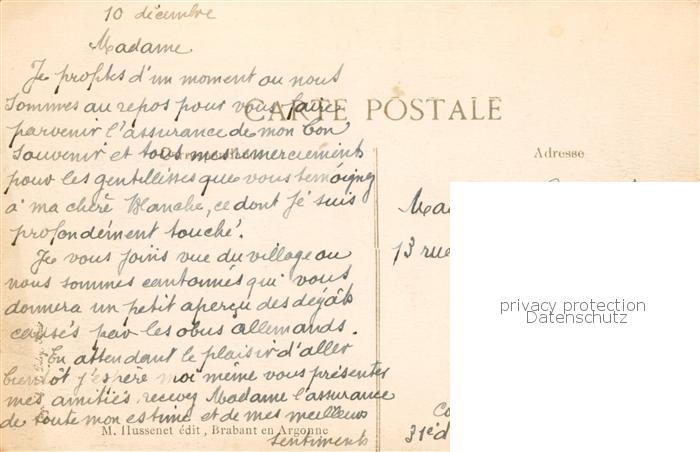 10 décembre
Madame
Je profites d'un moment ou nous
sommes au repos pour vous faire
CARTE POSTALE
parvenir l'assurance de mon bon
souvenir et tous mes remerciements
Adresse
pour les gentillisses que vous témoignez
à ma chère Blanche, ce dont je suis
profondément touché.
Je vous joins vue du village ou
nous sommes cantonnés qui vous
donnera un petit aperçu des dégâts
causés par les obus allemands.
En attendant le plaisir d'aller
bientôt j'espère moi même vous présenter
mes amitiés recevez Madame l'assurance
de toute mon estime et de mes meilleurs
sentiments
M. Hussenet édit, Brabant en Argonne
Mad
13 rue
privacy protection
Datenschutz
Co
31e d